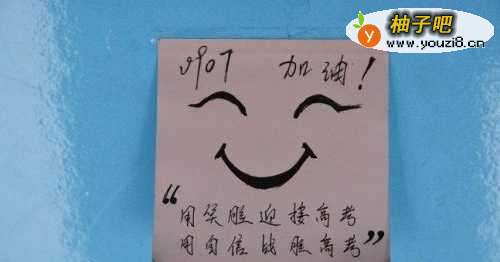 柚子吧
www.youzi8.cn
0907 加油！
“用笑脸迎接高考
用自信战胜高考”